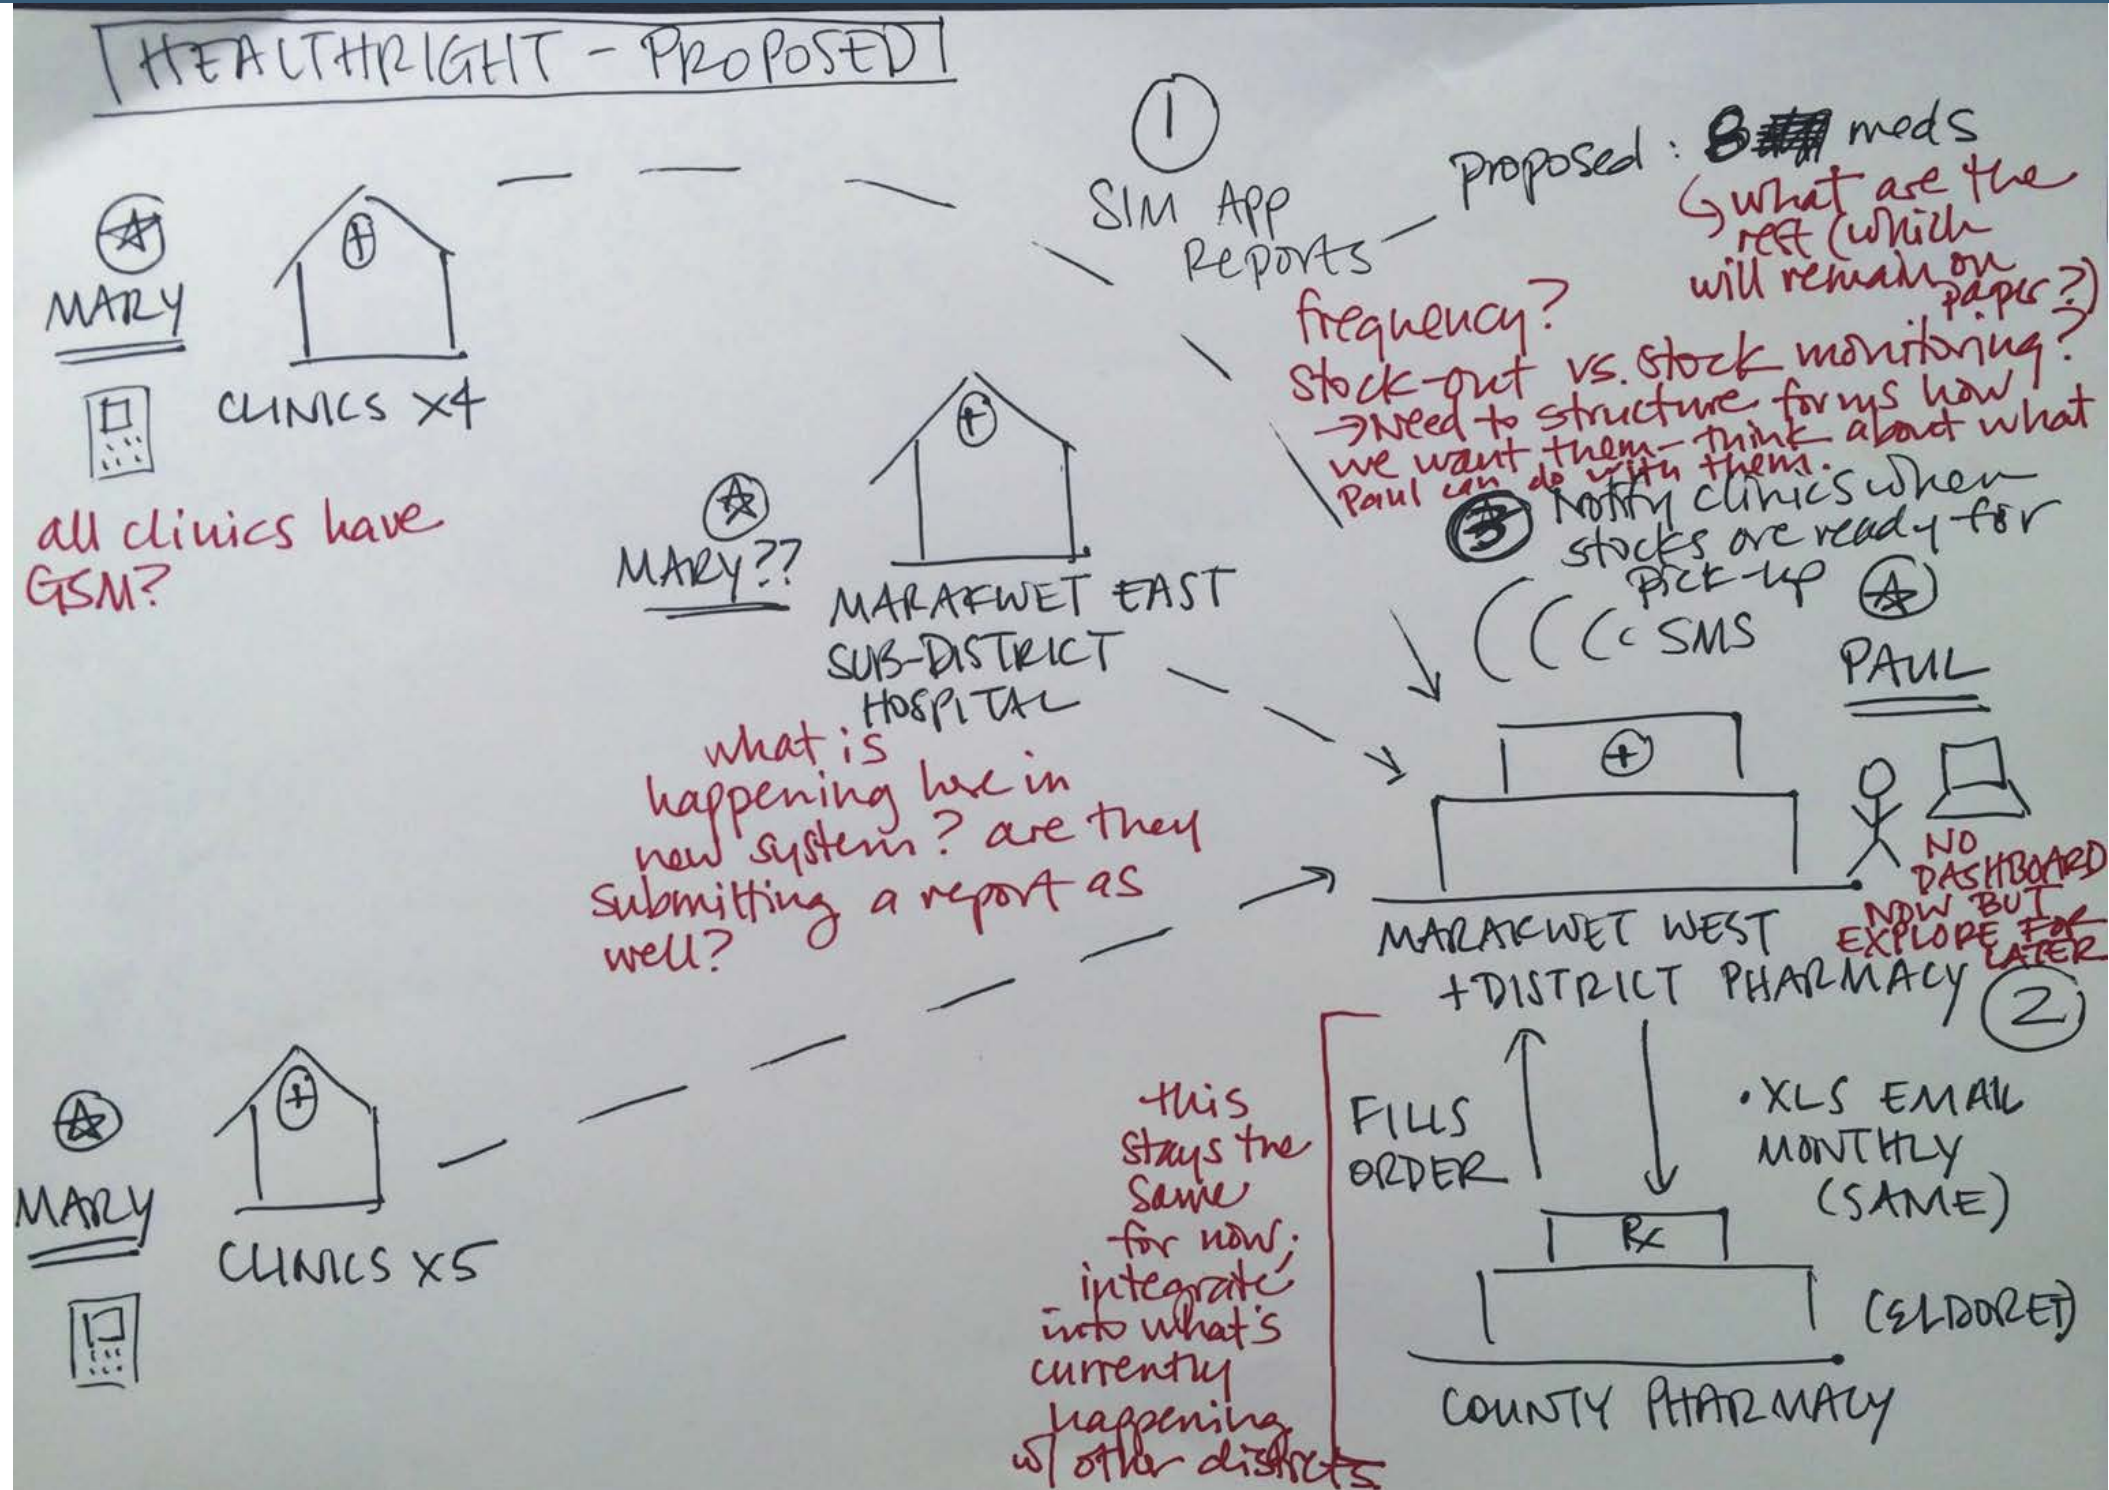 HEALTHRIGHT - PROPOSED
1
SIM APP
Reports
proposed: 8 meds
what are the
rest (which
will remain on
paper?)
frequency?
stock-out vs. stock monitoring?
→ Need to structure forms how
we want them - think about what
Paul can do with them.
3 Notify clinics when
stocks are ready for
pick-up
SMS
MARY
CLINICS X4
all clinics have
GSM?
MARY??
MARAKWET EAST
SUB-DISTRICT
HOSPITAL
what is
happening here in
new system? are they
submitting a report as
well?
PAUL
NO
DASHBOARD
NOW BUT
EXPLORE FOR
LATER
MARAKWET WEST
+ DISTRICT PHARMACY
2
MARY
CLINICS X5
this
stays the
same
for now;
integrate
into what's
currently
happening
w/ other districts
FILLS
ORDER
• XLS EMAIL
MONTHLY
(SAME)
Rx
(ELDORET)
COUNTY PHARMACY